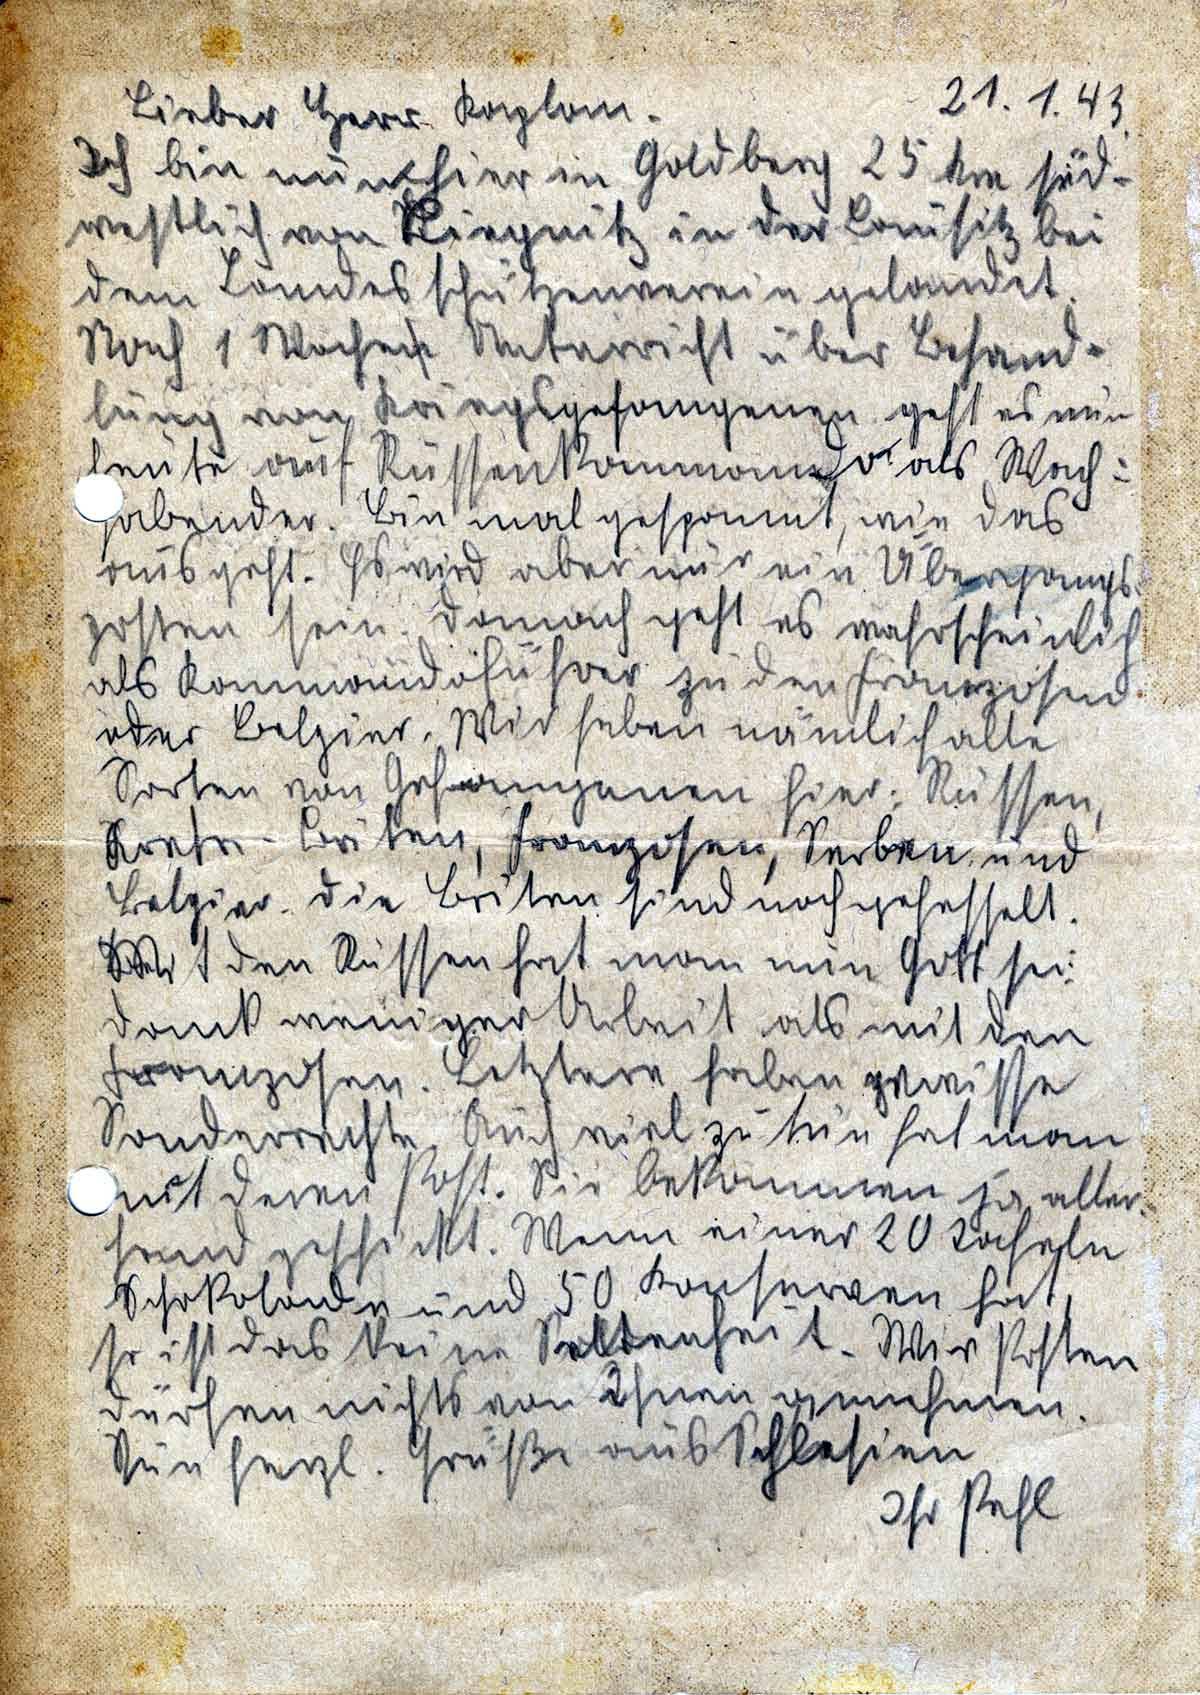 Lieber Herr Kaplan. 21.1.43.
Ich bin nun hier in Goldberg 25 km süd-
westlich von Liegnitz in der Lausitz bei
dem Landesschützenverein gelandet.
Nach 1 Woche Unterricht über Behand-
lung von Kriegsgefangenen geht es nun
heute auf Russenkommando als Wach-
habender. Bin mal gespannt, wie das
ausgeht. Es wird aber nur ein Übergangs-
posten sein. Danach geht es wahrscheinlich
als Kommandoführer zu den Franzosen
oder Belgier. Wir haben nämlich alle
Sorten von Gefangenen hier: Russen,
Kreta-Briten, Franzosen, Serben und
Belgier. Die Briten sind noch gefesselt.
Mit den Russen hat man nun Gott sei
dank weniger Arbeit als mit den
Franzosen. Letztere haben gewisse
Sonderrechte. Auch viel zu tun hat man
mit deren Post. Sie bekommen ja aller-
hand geschickt. Wenn einer 20 Tafeln
Schokolade und 50 Konserven hat,
so ist das keine Seltenheit. Wir Posten
dürfen nichts von Ihnen annehmen.
Nun herzl. Grüße aus Schlesien
Ihr Pehl